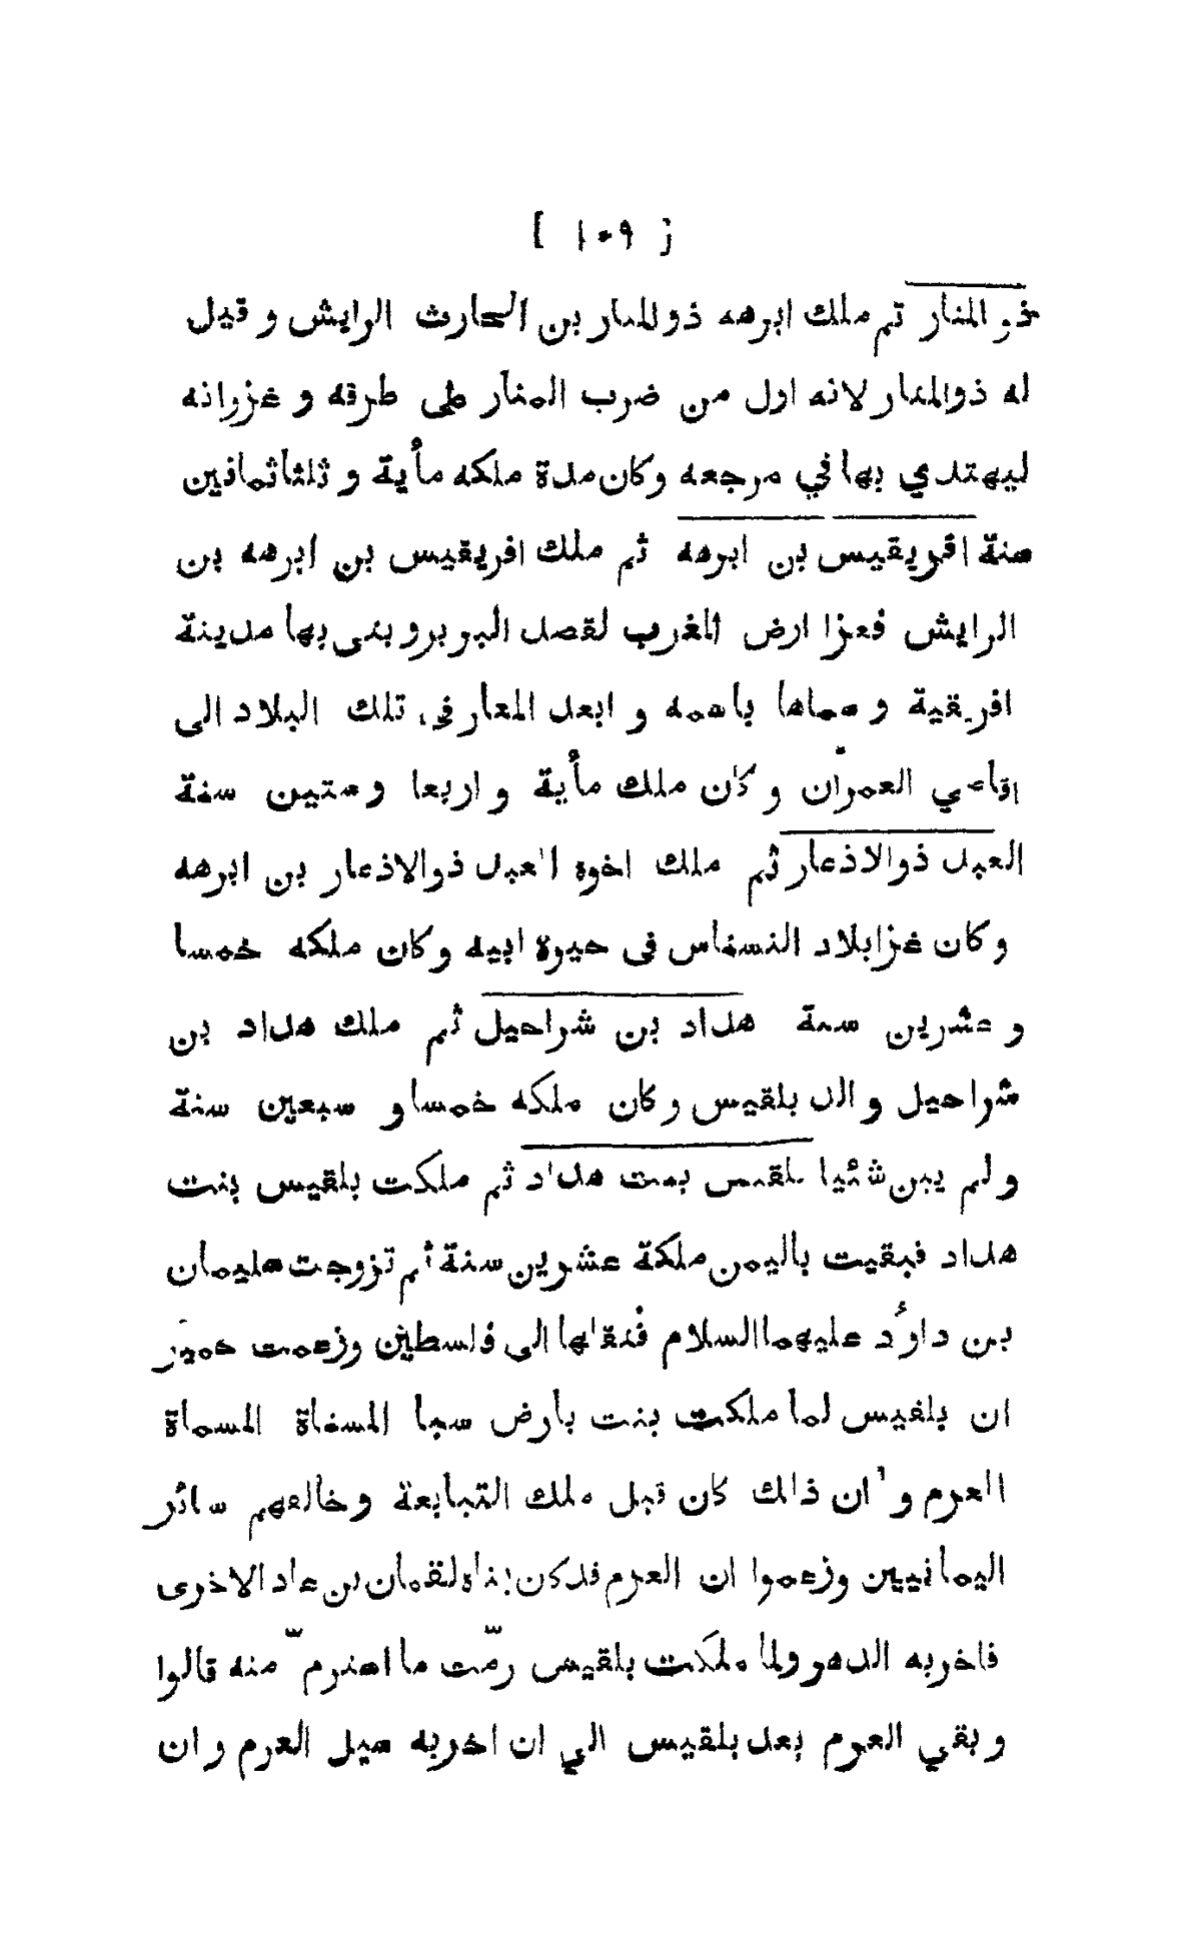 [ ١٠٩ ]
ذو المنار ثم ملك ابرهه ذو المنار بن الحارث الرايش و قيل
له ذوالمنار لانه اول من ضرب المنار على طرقه و غزواته
ليهتدي بها في مرجعه وكان مدة ملكه مأية و ثلثا ثمانين
سنة افريقيس بن ابرهه ثم ملك افريقيس بن ابرهه بن
الرايش فعزا ارض المغرب لقصد البربر و بنى بها مدينة
افريقية و سماها باسمه و ابعد المعار فى تلك البلاد الى
اقاصي العمران و كان ملك مأية و اربعا و ستين سنة
العبد ذوالاذعار ثم ملك اخوه العبد ذوالاذعار بن ابرهه
وكان غزا بلاد النسناس فى حيوة ابيه وكان ملكه خمسا
و عشرين سنة هداد بن شراحيل ثم ملك هداد بن
شراحيل و الد بلقيس وكان ملكه خمسا و سبعين سنة
ولم يبن شئيا بلقيس بنت هداد ثم ملكت بلقيس بنت
هداد فبقيت باليمن ملكة عشرين سنة ثم تزوجت سليمان
بن داؤد عليهما السلام فنقلها الى فلسطين وزعمت حمير
ان بلقيس لما ملكت بنت بأرض سبا المسناة المسماة
العرم و ان ذالك كان قبل ملك التبابعة وخالفهم سائر
اليمانيين وزعموا ان العرم قد كان بناه لقمان بن عاد الاخرى
فاخربه الدهر ولما ملكت بلقيس رمّت ما انهدم منه قالوا
و بقي العرم بعد بلقيس الي ان اخربه سيل العرم و ان